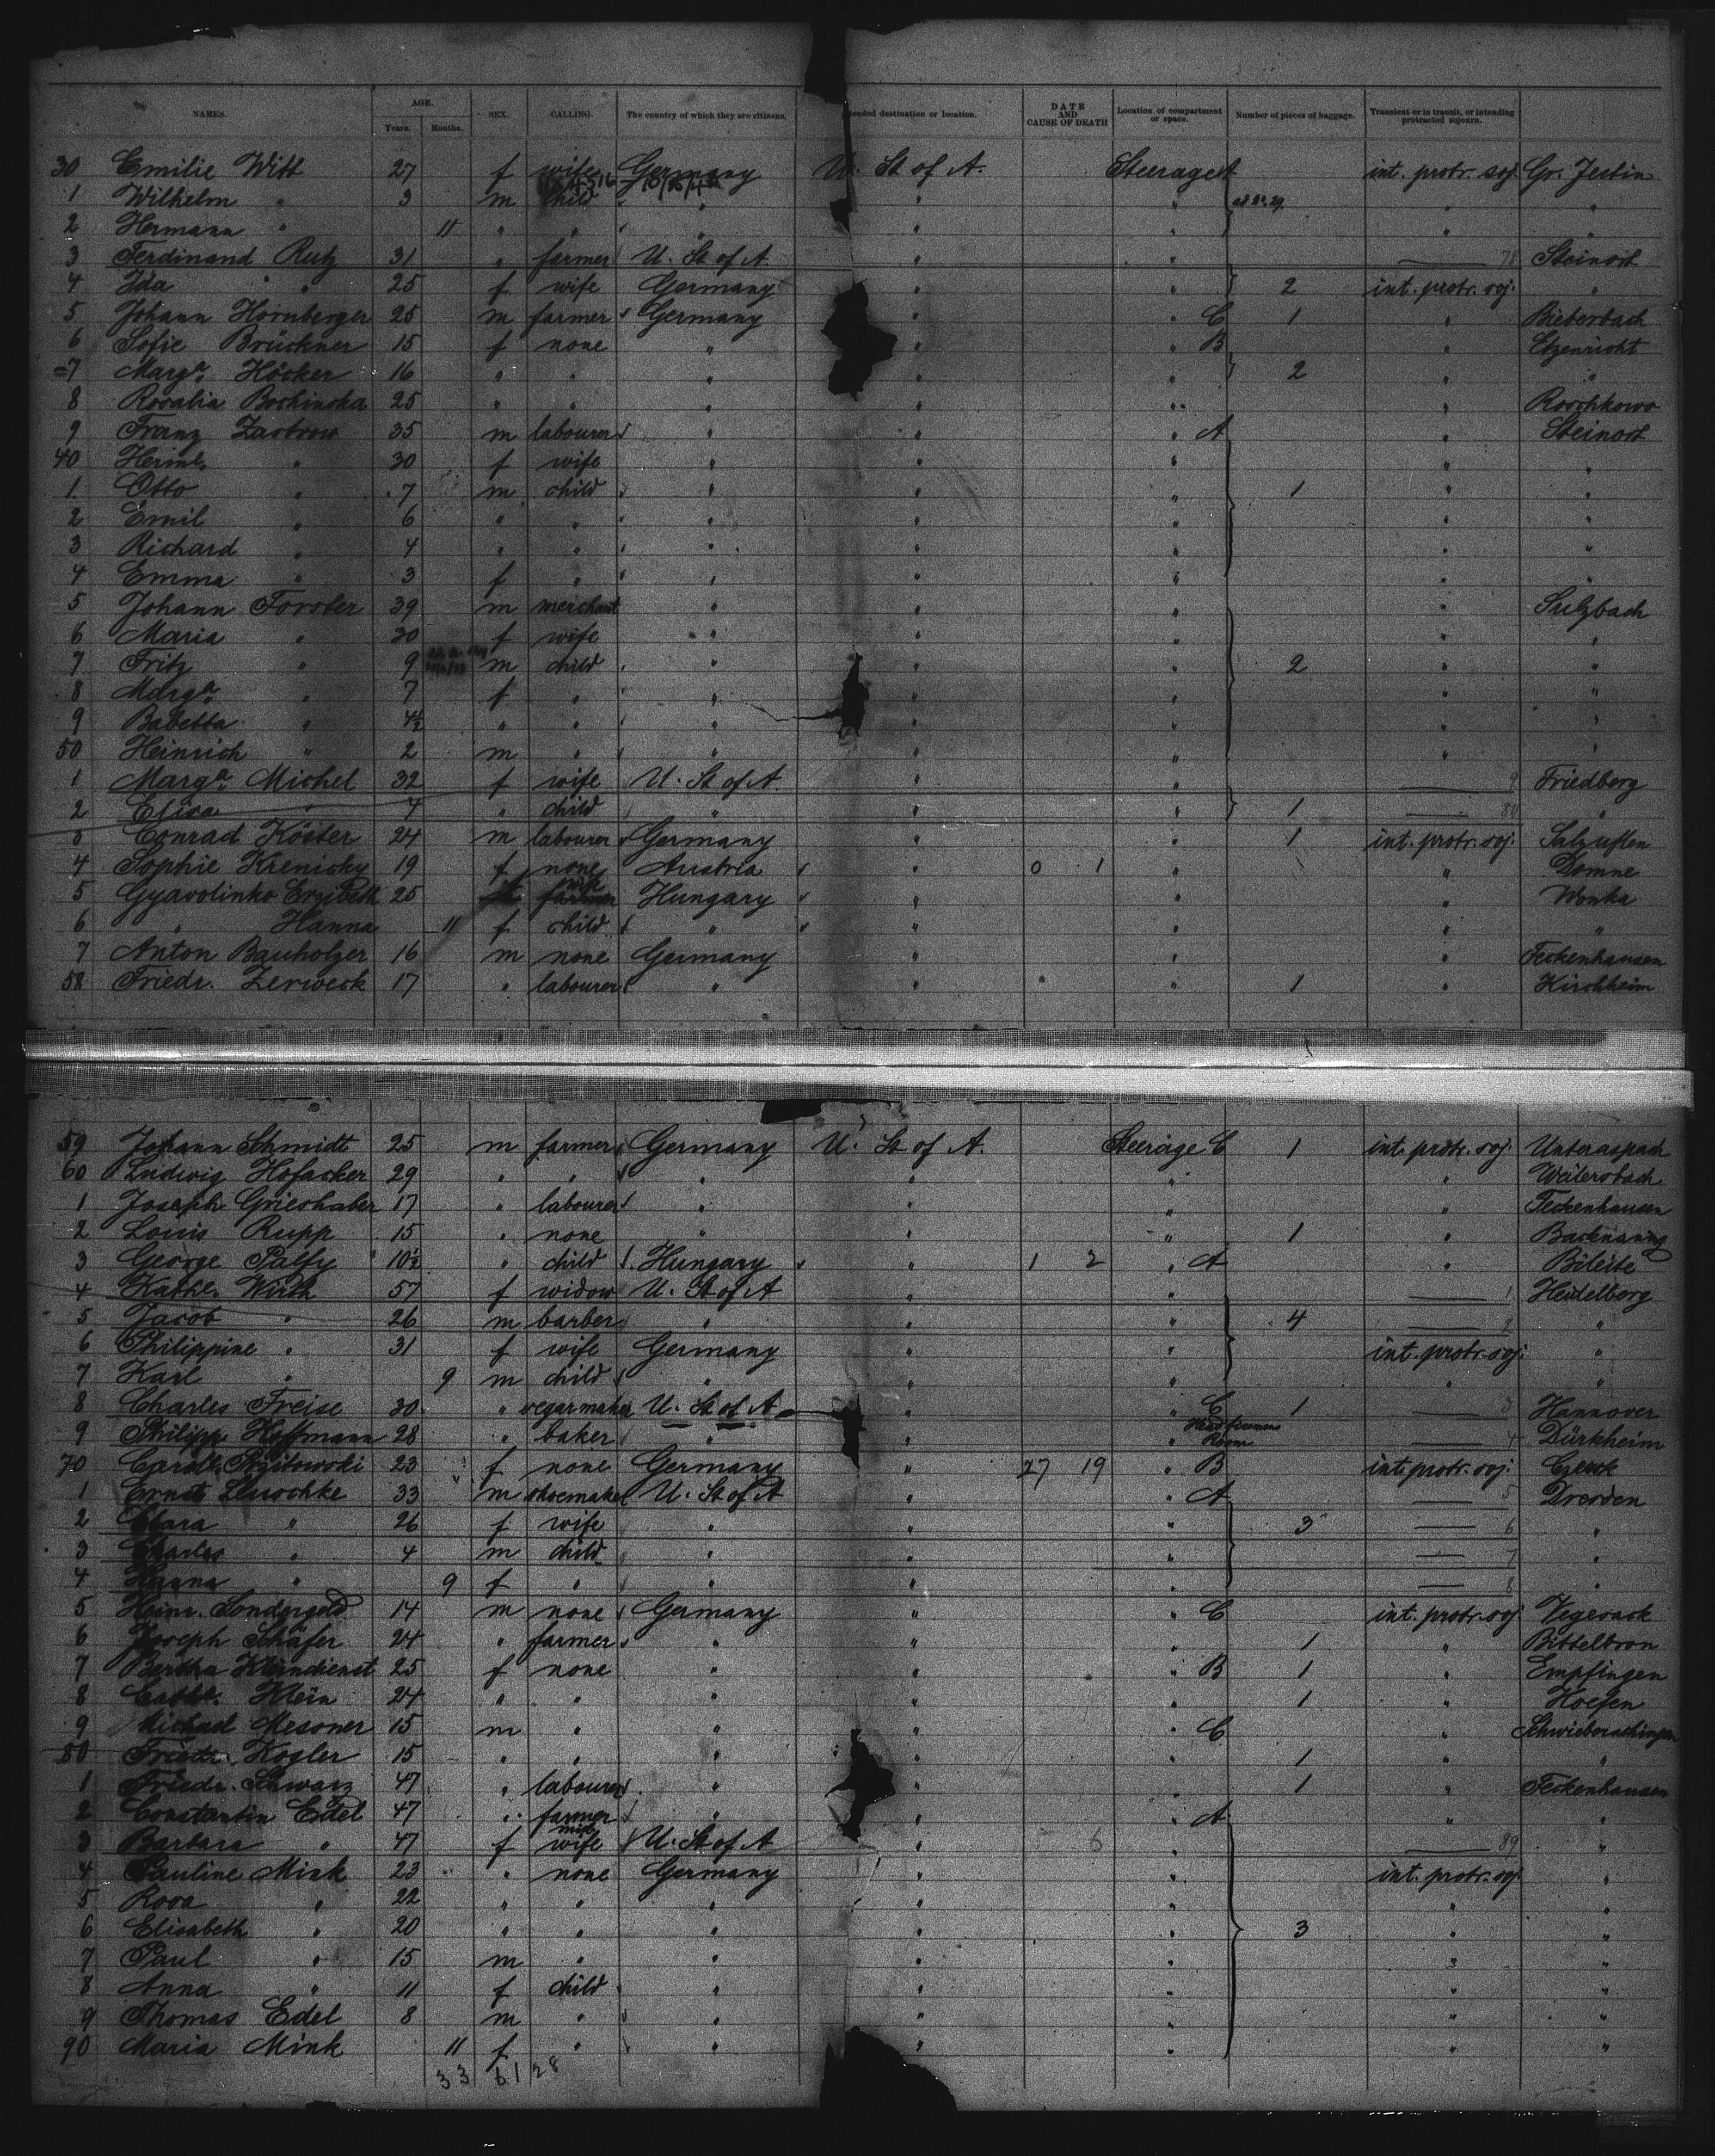 NAMES. AGE. Years. Months. SEX. CALLING. The country of which they are citizens. ended destination or location. DATE AND CAUSE OF DEATH Location of compartment or space. Number of pieces of baggage. Transient or in transit, or intending protracted sojurn.
30 Emilie Witt 27 f wife Germany U. St of A. Steerage A int. protr. soj. Gr. Jestin
1 Wilhelm " 3 m child " " " " " "
2 Hermann " 11 " " " " " " "
3 Ferdinand Rutz 31 " farmer U. St of A. " " 78 Steinort
4 Ida " 25 f wife Germany " " 2 int. protr. soj. "
5 Johann Hornberger 25 m farmer Germany " " C 1 " Bieberbach
6 Sofie Brückner 15 f none " " " B " Etzenricht
7 Marga. Höcker 16 " " " " " 2 " "
8 Rosalia Bochinska 25 " " " " " " Roschkowo
9 Franz Zastrow 35 m labourer " " " A " Steinort
40 Herml. " 30 f wife " " " " "
1 Otto " 7 m child " " " 1 " "
2 Emil " 6 " " " " " " "
3 Richard " 4 " " " " " " "
4 Emma " 3 f " " " " " "
5 Johann Forster 39 m merchant " " " " Sulzbach
6 Maria " 30 f wife " " " " "
7 Fritz " 9 m child " " " 2 " "
8 Marga. " 7 f " " " " " "
9 Babetta " 4½ " " " " " " "
50 Heinrich " 2 m " " " " " "
1 Marga. Michel 32 f wife U. St of A. " " 9 Friedberg
2 Elisa " 4 " child " " " 1 80 "
3 Conrad Köster 24 m labourer Germany " " 1 int. protr. soj. Salzuflen
4 Sophie Krenicky 19 f none Austria " 0 1 " " Domne
5 Gyavolinko Erzibeth 25 wife farmer Hungary " " " Wonka
6 " Hanna 11 f child " " " " "
7 Anton Bauholzer 16 m none Germany " " " Feckenhausen
58 Friedr. Zerweck 17 " labourer " " " 1 " Kirchheim
59 Johann Schmidt 25 m farmer Germany U. St of A. Steerage C 1 int. protr. soj. Unteraspach
60 Ludwig Hofacker 29 " " " " " " Weilersbach
1 Joseph Grieshaber 17 " labourer " " " " Feckenhausen
2 Louis Rupp 15 " none " " " 1 " Backnang
3 George Palfy 10½ " child Hungary " 1 2 " A " Böleite
4 Kathe. Wirth 57 f widow U. St of A " " 1 Heidelberg
5 Jacob " 26 m barber " " " 4 2 "
6 Philippine " 31 f wife Germany " " int. protr. soj. "
7 Karl " 9 m child " " " " "
8 Charles Freise 30 " segarmaker U. St of A " " C 1 3 Hannover
9 Philipp Hoffmann 28 " baker " " " Room 4 Dürkheim
70 23 f none Germany " 27 19 " B int. protr. soj. Czersk
1 Ernst Luschke 33 m shoemaker U. St of A " " A 5 Dresden
2 Clara " 26 f wife " " " 3 6 "
3 Charles " 4 m child " " " 7 "
4 Hanna " 9 f " " " " 8 "
5 Heinr. Sondergeld 14 m none Germany " " C int. protr. soj. Vegesack
6 Joseph Schäfer 24 " farmer " " " 1 " Bittelbron
7 Bertha Kleindienst 25 f none " " " B 1 " Empfingen
8 Cathe. Klein 24 " " " " " 1 " Hoefen
9 Michael Messner 15 m " " " " C " Schwieberdingen
80 Friedr. Kogler 15 " " " " " 1 " "
1 Friedr. Schwarz 47 " labourer " " " 1 " Feckenhausen
2 Constantin Edel 47 " farmer " " " A " "
3 Barbara " 47 f wife U. St of A " 6 " 89 "
4 Pauline Mink 23 " none Germany " " int. protr. soj. "
5 Rosa " 22 " " " " " " "
6 Elisabeth " 20 " " " " " 3 " "
7 Paul " 15 m " " " " " "
8 Anna " 11 f child " " " " "
9 Thomas Edel 8 m " " " " " "
90 Maria Mink 11 f " " " " " "
33 61 28